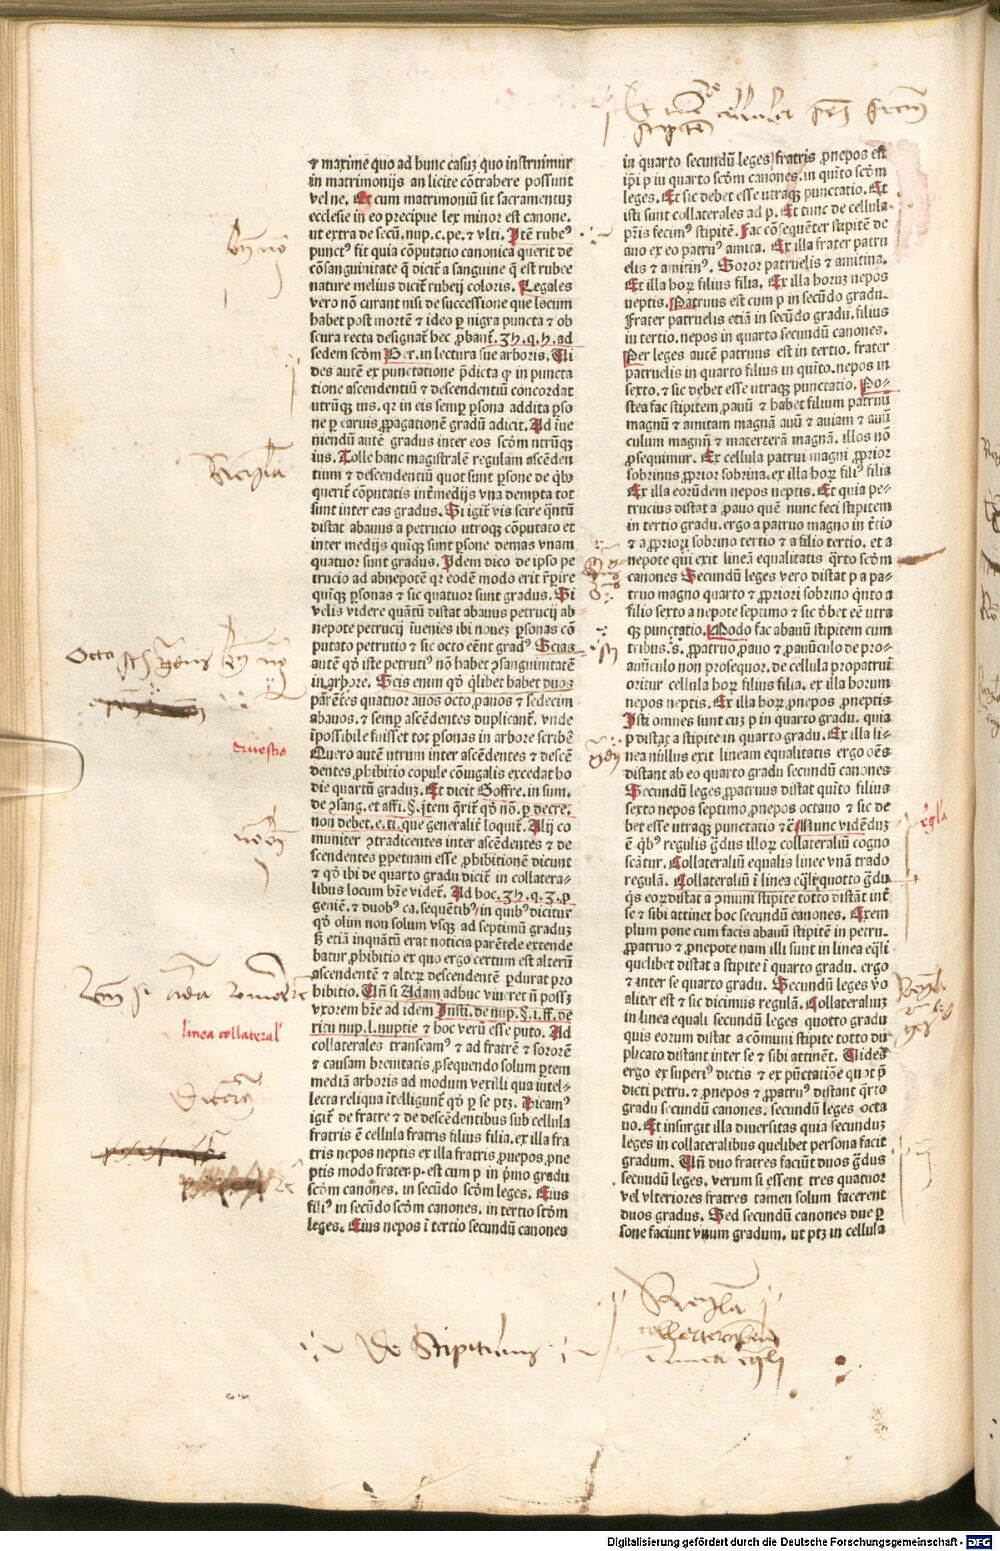 ⁊ maxime quo ad hunc casuz quo instruimur
in matrimonijs an licite cõtrahere possunt
vel ne. Et cum matrimoniũ sit sacramentuz
ecclesie in eo precipue lex minor est canone.
ut extra de secũ. nup. c. pe. ⁊ vlti. Itẽ rubeꝰ
punctꝰ fit quia cõputatio canonica querit de
cõsanguinitate q̃ dicit̃ a sanguine q̃ est rubee
nature melius dicit̃ rubeij coloris. Legales
vero nõ curant nisi de successione que locum
habet post mortẽ ⁊ ideo ꝑ nigra puncta ⁊ ob
scura recta designat̃ hec ꝓbant̃. 3ꝝ. q. ꝝ. ad
sedem scõm Ber. in lectura sue arboris. Ui
des autẽ ex punctatione p̃dicta ꝙ in puncta
tione ascendentiũ ⁊ descendentiũ concordat
utrũqꝫ ius. qr in eis semꝑ ꝑsona addita ꝑso
ne ꝑ carnis ꝓpagationẽ gradũ adicit. Ad ĩue
niendũ autẽ gradus inter eos scõm utrũqꝫ
ius. Tolle hanc magistralẽ regulam ascẽden
tium ⁊ descendentiũ quot sunt ꝑsone de q̃bꝰ
querit̃ cõputatis int̃medijs vna dempta tot
sunt inter eas gradus. Si igit̃ vis scire q̃ntũ
distat abauus a petrucio utroqꝫ cõputato et
inter medijs quiqꝫ sunt ꝑsone demas vnam
quatuor sunt gradus. Idem dico de ipso pe
trucio ad abnepotẽ qr eodẽ modo erit r̃pire
quiqꝫ ꝑsonas ⁊ sic quatuor sunt gradus. Si
velis videre quãtũ distat abauus petrucij ab-
nepote petrucij ĩuenies ibi nouez ꝑsonas cõ
putato petrutio ⁊ sic octo eẽnt gradꝰ Scias
autẽ qð iste petrutiꝰ nõ habet ↄsanguinitatẽ
in arbore. Scis enim qð q̃libet habet duos
parẽtes quatuor auos octo ꝓauos ⁊ sedecim
abauos. ⁊ semꝑ ascẽdentes duplicant̃. vnde
ĩpossibile fuisset tot ꝑsonas in arbore scribẽ
Quero autẽ utrum inter ascẽdentes ⁊ descẽ
dentes ꝓhibitio copule cõiugalis excedat ho
die quartũ graduz. Et dicit Goffre. in sum.
de ↄsang. et affi. §. itẽ q̃rit̃ qð nõ. ꝑ decre.
non debet. e. ti. que generalit̃ loquit̃. Alij co
muniter ↄtradicentes inter ascẽdentes ⁊ de
scendentes ꝑpetuam esse ꝓhibitionẽ dicunt
⁊ qð ibi de quarto gradu dicit̃ in collatera-
libus locum hr̃e videt̃. Ad hoc. 3ꝝ. q. 3. ꝑ
geniẽ. ⁊ duobꝰ ca. sequẽtibꝰ in quibꝰ dicitur
qð olim non solum vsqꝫ ad septimũ graduz
sꝫ etiã inquãtũ erat noticia parẽtele extende
batur ꝓhibitio ex quo ergo certum est alterũ
ascendentẽ ⁊ alteꝝ descendentẽ ꝑdurat pro
hibitio. Uñ si Adam adhuc viueret ñ possꝫ
vxorem hr̃e ad idem Insti. de nup. §. i. ff. de
ritu nup. l. nuptie ⁊ hoc verũ esse puto. Ad
collaterales transeamꝰ ⁊ ad fratrẽ ⁊ sororẽ
⁊ causam breuitatis ꝓsequendo solum ꝑtem
mediã arboris ad modum vexilli qua intel-
lecta reliqua ĩtelligunt̃ qð ꝑ se ptꝫ. Dicamꝰ
igit̃ de fratre ⁊ de descẽdentibus sub cellula
fratris ẽ cellula fratris filius filia. ex illa fra
tris nepos neptis ex illa fratris ꝓnepos ꝓne
ptis modo frater p. est cum p in p̃mo gradu
scõm canones. in secũdo scõm leges. Eius
filiꝰ in secũdo scõm canones. in tertio scõm
leges. Eius nepos ĩ tertio secundũ canones
in quarto secundũ leges fratris ꝓnepos est
ip̃i p in quarto scõm canones. in quĩto scõm
leges. Et sic debet esse utraqꝫ punctatio. Et
isti sunt collaterales ad p. Et tunc de cellula
pr̃is fecimꝰ stipitẽ. Fac cõsequẽter stipitẽ de
auo ex eo patruꝰ amita. Ex illa frater patru
elis ⁊ amitinꝰ. Soror patruelis ⁊ amitina.
Et illa hoꝝ filius filia. Ex illa horuz nepos
neptis. Patruus est cum p in secũdo gradu.
Frater patruelis etiã in secũdo gradu. filius
in tertio. nepos in quarto secundũ canones.
Per leges autẽ patruus est in tertio. frater
patruelis in quarto filius in quĩto. nepos in
sexto. ⁊ sic debet esse utraqꝫ punctatio. Po-
stea fac stipitem. ꝓauũ ⁊ habet filium patruũ
magnũ ⁊ amitam magnã auũ ⁊ auiam ⁊ auũ
culum magnũ ⁊ materterã magnã. illos nõ
ꝓsequimur. Ex cellula patrui magni ꝓprior
sobrinus ꝓprior sobrina. ex illa hoꝝ filiꝰ filia
Ex illa eorũdem nepos neptis. Et quia pe-
trucius distat a ꝓauo quẽ nunc feci stipitem
in tertio gradu. ergo a patruo magno in t̃tio
⁊ a ꝓpriori sobrino tertio ⁊ a filio tertio. et a
nepote qui exit lineã equalitatis q̃rto scõm
canones Secundũ leges vero distat p a pa-
truo magno quarto ⁊ ꝓpriori sobrino q̃nto a
filio sexto a nepote septimo ⁊ sic ðbet eẽ utra
qꝫ punctatio. Modo fac abauũ stipitem cum
tribus. s. ꝓpatruo ꝓauo ⁊ ꝓauũculo de pro-
auũculo non prosequor. de cellula propatrui
oritur cellula hoꝝ filius filia. ex illa horum
nepos neptis. Ex illa hoꝝ ꝓnepos ꝓneptis
Isti omnes sunt cuz p in quarto gradu. quia
p distat a stipite in quarto gradu. Ex illa li-
nea nullus exit lineam equalitatis ergo oẽs
distant ab eo quarto gradu secundũ canones
Secundũ leges ꝓpatruus distat quĩto filius
sexto nepos septimo ꝓnepos octauo ⁊ sic de
bet esse utraqꝫ punctatio ⁊c̃ Nunc vidẽduz
ẽ q̃bꝰ regulis g̃dus illoꝝ collateraliũ cogno
scãtur. Collateraliũ equalis linee vnã trado
regulã. Collateraliũ ĩ linea eq̃li quotto g̃du
q̃s eoꝝ distat a ↄmuni stipite totto distãt int̃
se ⁊ sibi attinet hoc secundũ canones. Exem
plum pone cum facis abauũ stipitẽ in petru.
ꝓpatruo ⁊ ꝓnepote nam illi sunt in linea eq̃li
quelibet distat a stipite ĩ quarto gradu. ergo
⁊ inter se quarto gradu. Secundũ leges ṽo
aliter est ⁊ sic dicimus regulã. Collateraliuz
in linea equali secundũ leges quotto gradu
quis eorum distat a cõmuni stipite totto du
plicato distant inter se ⁊ sibi attinẽt. Uides
ergo ex superiꝰ dictis ⁊ ex pũctatiõe quot p̃
dicti petru. ⁊ ꝓnepos ⁊ ꝓpatruꝰ distant q̃rto
gradu secundũ canones. secundũ leges octa
uo. Et insurgit illa diuersitas quia secunduz
leges in collateralibus quelibet persona facit
gradum. Uñ duo fratres faciũt duos g̃dus
secundũ leges. verum si essent tres quatuor
vel vlteriores fratres tamen solum facerent
duos gradus. Sed secundũ canones due ꝑ
sone faciunt vnum gradum. ut ptꝫ in cellula
Regula
linea collateral'
rg̃la
De Stipitibus
Regula
collateralium
in linea eq̃li
Digitalisierung gefördert durch die Deutsche Forschungsgemeinschaft - DFG